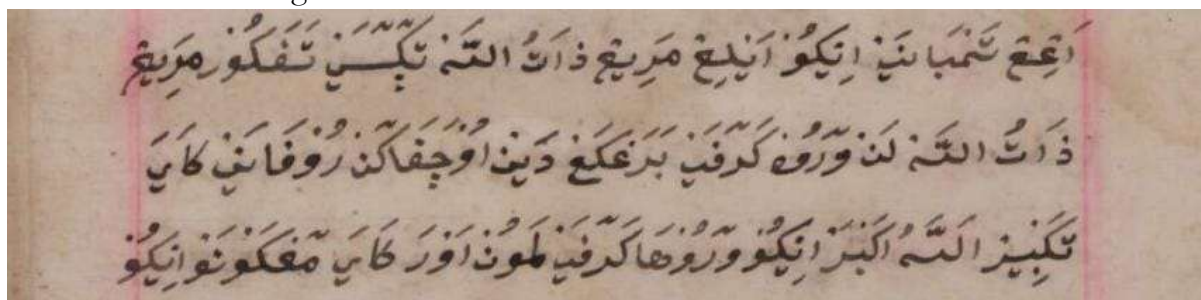 اَڠِڠ تَمْبَانَنَيْ اِيْكُوْ اَنٓيْلِڠ مَرِيْڠ ذَاتُ اللّٰه تٓڮٓسَيْ تَفَكُوْر مَرِيْڠ
ذَاتُ اللّٰه لَنْ وٓرُوْه كَرٓفَيْ بَرَڠكَڠ دَيْن اُوْچَفَاكٓن رُوْفَانَيْ كَايَ
تَكْبِيْر اَللّٰهُ اَكْبَرْ اِيْكُوْ وٓرُوْهَا كَرٓفَيْ لَمُوْن اَوْرَ كَايَ مٓڠكَوْنَوْ اِيْكُوْ